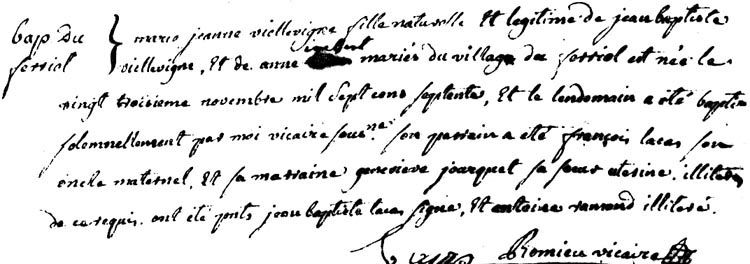 bap du
ferriol
marie jeanne viellevigne fille naturelle Et legitime de jean baptiste
viellevigne, Et de anne mariés du village du ferriol est née le
vingt troisieme novembre mil Sept cens septente, Et le lendemain a été baptisée
solemnellement par moi vicaire sous.né son parrain a été françois lacas son
oncle maternel, Et sa marraine genevieve jourquet sa sœur uterine. illiterés
de ce requis. ont été pnts jean baptiste lacas signe, Et antoine ramond illiteré.
Romieu vicaire